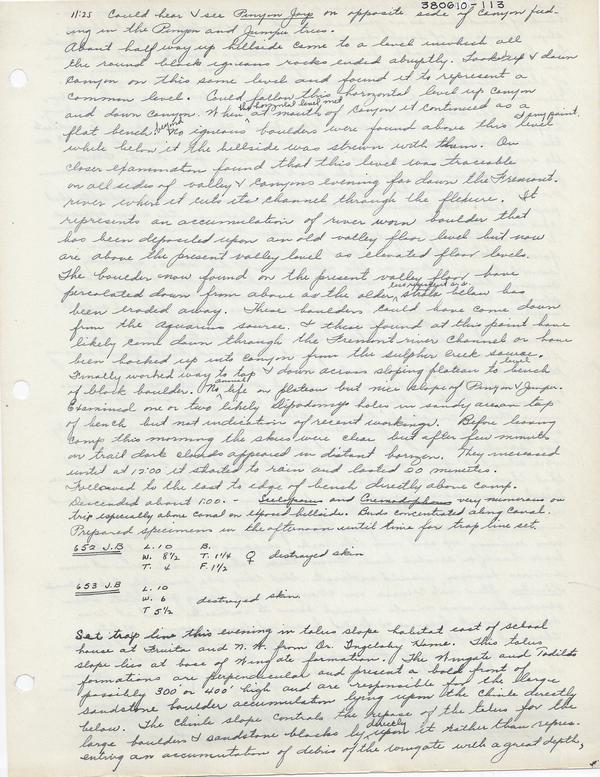 380610-113
11:25 Could hear & see Pinyon Jays on opposite side of canyon feed-
ing in the Pinyon and Juniper trees.
About half way up hillside came to a level in which all
the round black igneous rocks ended abruptly. Looked up & down
canyon on this same level and found it to represent a
common level. Could follow this horizontal level up canyon
and down canyon. When this horizontal level met at mouth of canyon it continued as a
flat bench. No igneous boulders were found above this level at any point
while below it the hillside was strewn with them. On
closer examination found that this level was traceable
on all sides of valley & canyons evening far down the Fremont
river where it cuts its channel through the flexure. It
represents an accumulation of river worn boulder that
has been deposited upon an old valley floor level but now
are above the present valley level as elevated floor levels.
The boulder now found on the present valley floor have
percolated down from above as the older strata below has
been eroded away. These boulders could have come down
from the Aquarius source. & those found at this point have
likely come down through the Fremont river channel or have
been backed up into canyon from the sulphur creek source.
Finally worked way to top & down across sloping plateau to bench level
of black boulder. No animal life on plateau but nice slope of Pinyon & Juniper.
Examined one or two likely Dipodomys holes in sandy areas on top
of bench but not indication of recent workings. Before leaving
camp this morning the skies were clear but after few minutes
on trail dark clouds appeared in distant horizon. They increased
until at 12:00 it started to rain and lasted 20 minutes.
Followed to the east to edge of bench directly above camp.
Descended about 1:00. - Sceloporus and Cnemidophorus very numerous on
trip especially above canal on exposed hillside. Birds concentrated along Canal.
Prepared specimens in the afternoon until time for trap line set.
652 J.B L. 10 B.
W. 8 1/2 T. 1 1/4 ♀ destroyed skin
T. 4 F. 1 1/2
653 J.B L. 10
W. 6 destroyed skin.
T 5 1/2
Set trap line this evening in talus slope habitat east of school
house at Fruita and N.W. from Dr. Inglesby Home. This talus
slope lies at base of Wingate formation. The Wingate and Todilto
formations are perpendicular and present a bold front of
possibly 300' or 400' high and are responsible for the large
sandstone boulder accumulation lying upon the Chinle directly
below. The chinle slope controls the repose of the talus for the
large boulders & sandstone blocks lie directly upon it rather than repres-
enting an accumulation of debris of the wingate with a great depth,